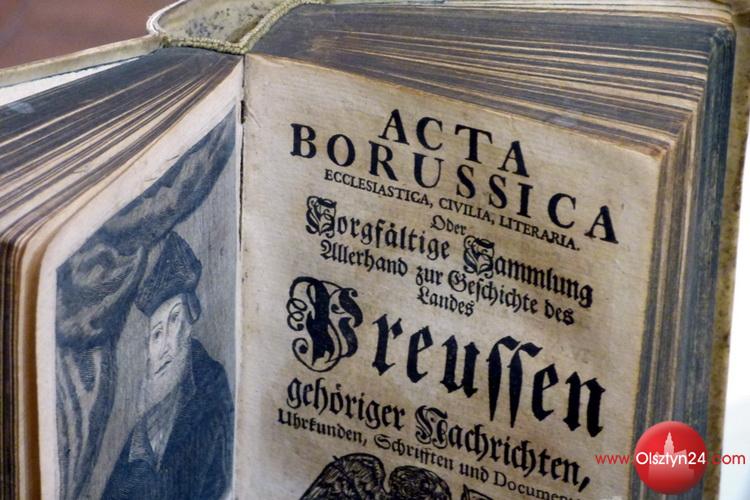 ACTA
BORUSSICA
ECCLESIASTICA, CIVILIA, LITERARIA.
Oder
Sorgfältige Sammlung
Allerhand zur Geschichte des
Landes
Preussen
gehöriger Nachrichten,
Uhrkunden, Schrifften und Documen
www.Olsztyn24.com